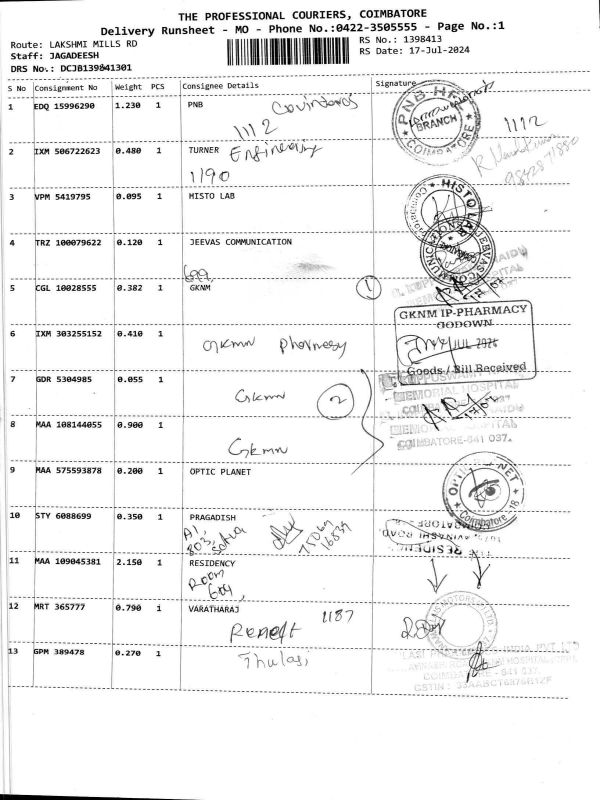 THE PROFESSIONAL COURIERS, COIMBATORE
Delivery Runsheet - MO - Phone No.:0422-3505555 - Page No.:1
Route: LAKSHMI MILLS RD RS No.: 1398413
Staff: JAGADEESH RS Date: 17-Jul-2024
DRS No.: DCJB139841301
S No Consignment No Weight PCS Consignee Details Signature
1 EDQ 15996290 1.230 1 PNB
1112
PNB HFL
BRANCH
COIMBATORE
1112
2 IXM 506722623 0.480 1 TURNER Engineering
1190
3 VPM 5419795 0.095 1 HISTO LAB
HISTO LAB
4 TRZ 100079622 0.120 1 JEEVAS COMMUNICATION
JEEVAS COMMUNICATION
699,
5 CGL 10028555 0.382 1 GKNM 1
MEMORIAL HOSPITAL
GKNM IP-PHARMACY
GODOWN
JUL 2024
Goods / Bill Received
6 IXM 303255152 0.410 1
Gkmn Pharmacy
7 GDR 5304985 0.055 1
Gkmn 2
MEMORIAL HOSPITAL
8 MAA 108144055 0.900 1
Gkmn
MEMORIAL HOSPITAL
COIMBATORE-641 037.
9 MAA 575593878 0.200 1 OPTIC PLANET
Coimbatore - 18
10 STY 6088699 0.350 1 PRAGADISH
A1,
803,
75067
16839
AVINASHI ROAD,
RESIDENCY
11 MAA 109045381 2.150 1 RESIDENCY
Room
604,
12 MRT 365777 0.790 1 VARATHARAJ
Renelt 1187
13 GPM 389478 0.270 1
Thulasi
INDIA PVT. LTD
COIMBATORE - 641 037.